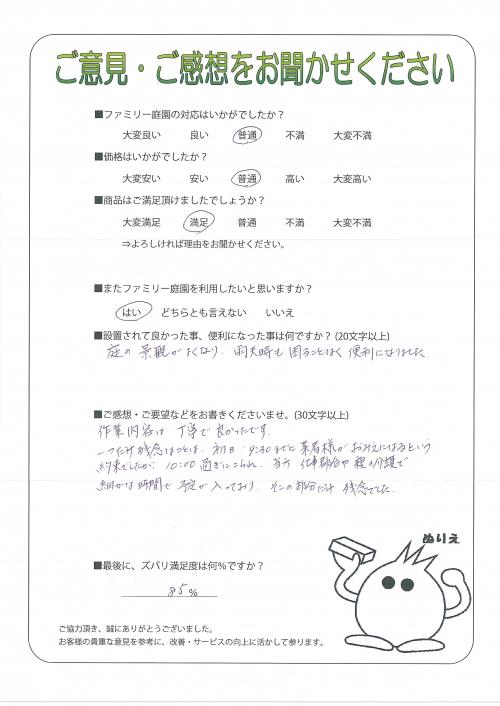 ご意見・ご感想をお聞かせください
■ファミリー庭園の対応はいかがでしたか？
大変良い 良い 普通 不満 大変不満
■価格はいかがでしたか？
大変安い 安い 普通 高い 大変高い
■商品はご満足頂けましたでしょうか？
大変満足 満足 普通 不満 大変不満
⇒よろしければ理由をお聞かせください。
■またファミリー庭園を利用したいと思いますか？
はい どちらとも言えない いいえ
■設置されて良かった事、便利になった事は何ですか？(20文字以上)
庭の景観がよくなり、雨天時も困ることなく便利になりました。
■ご感想・ご要望などをお書きくださいませ。(30文字以上)
作業内容は丁寧で良かったです。
一つだけ残念なことは、初日、9:30までに業者様がおみえになるという
約束でしたが、10:00過ぎにこられ、当方、仕事都合や親の介護で
細かな時間で予定が入っており、その部分だけ残念でした。
ぬりえ
■最後に、ズバリ満足度は何％ですか？
85％
ご協力頂き、誠にありがとうございました。
お客様の貴重な意見を参考に、改善・サービスの向上に活かして参ります。